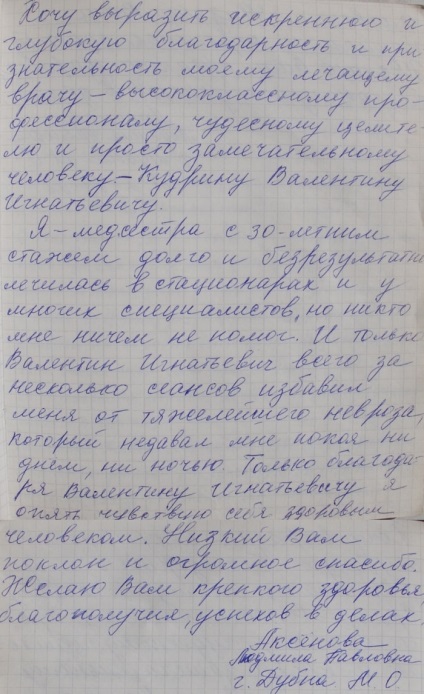 Хочу выразить искреннюю и
глубокую благодарность и при
знательность моему лечащему
врачу – высококлассному про-
фессионалу, чудесному целите-
лю и просто замечательному
человеку – Кудрину Валентину
Игнатьевичу.
Я – медсестра с 30-летним
стажем долго и безрезультатно
лечилась в стационарах и у
многих специалистов, но никто
мне ничем не помог. И только
Валентин Игнатьевич всего за
несколько сеансов избавил
меня от тяжелейшего невроза,
который недавал мне покоя ни
днем, ни ночью. Только благода-
ря Валентину Игнатьевичу я
опять чувствую себя здоровым
человеком. Низкий Вам
поклон и огромное спасибо.
Желаю Вам крепкого здоровья,
благополучия, успехов в делах.
Аксёнова
Людмила Павловна
г. Дубна М О